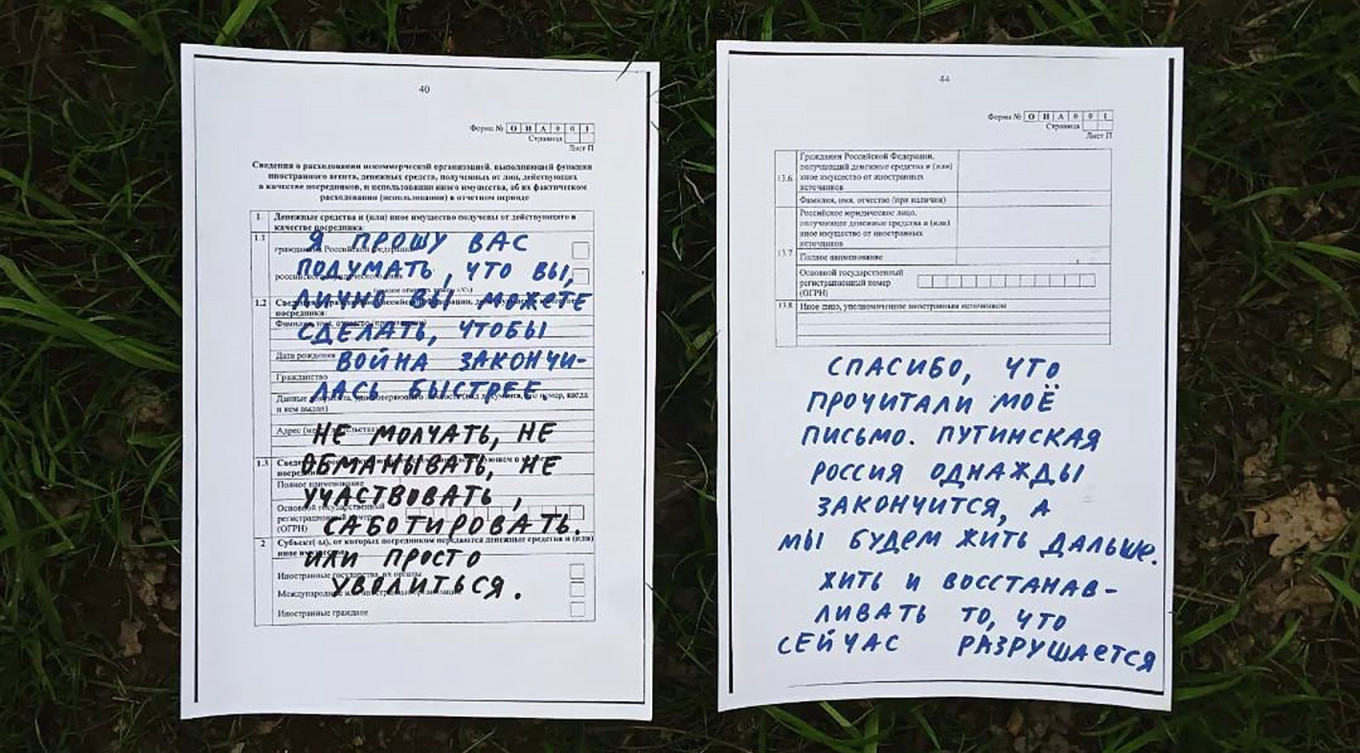 40
Форма № О И А 0 0 1
Страница
Лист П
Сведения о расходовании некоммерческой организацией, выполняющей функции
иностранного агента, денежных средств, полученных от лиц, действующих
в качестве посредников, и использовании иного имущества, об их фактическом
расходовании (использовании) в отчетном периоде
1. Денежные средства и (или) иное имущество получены от действующего в
качестве посредника
1.1
Я ПРОШУ ВАС
ПОДУМАТЬ, ЧТО ВЫ,
1.2
ЛИЧНО ВЫ МОЖЕТЕ
СДЕЛАТЬ, ЧТОБЫ
Дата рождения
ВОЙНА ЗАКОНЧИ-
Гражданство
ЛАСЬ БЫСТРЕЕ.
и кем выдан)
НЕ МОЛЧАТЬ, НЕ
1.3
ОБМАНЫВАТЬ, НЕ
Полное наименование
УЧАСТВОВАТЬ,
Основной государственный
регистрационный номер
(ОГРН)
САБОТИРОВАТЬ.
2 Субъект(-ы), от которых посредником передаются денежные средства и (или)
иное имущество
ИЛИ ПРОСТО
Иностранные государства, их органы
УВОЛИТЬСЯ.
Иностранные граждане
44
Форма № О И А 0 0 1
Страница
Лист П
13.6 Гражданин Российской Федерации,
получающий денежные средства и (или)
иное имущество от иностранных
источников
Фамилия, имя, отчество (при наличии)
13.7 Российское юридическое лицо,
получающее денежные средства и (или)
иное имущество от иностранных
источников
Полное наименование
Основной государственный
регистрационный номер
(ОГРН)
13.8 Иное лицо, уполномоченное иностранным источником
СПАСИБО, ЧТО
ПРОЧИТАЛИ МОЁ
ПИСЬМО. ПУТИНСКАЯ
РОССИЯ ОДНАЖДЫ
ЗАКОНЧИТСЯ, А
МЫ БУДЕМ ЖИТЬ ДАЛЬШЕ.
ЖИТЬ И ВОССТАНАВ-
ЛИВАТЬ ТО, ЧТО
СЕЙЧАС РАЗРУШАЕТСЯ